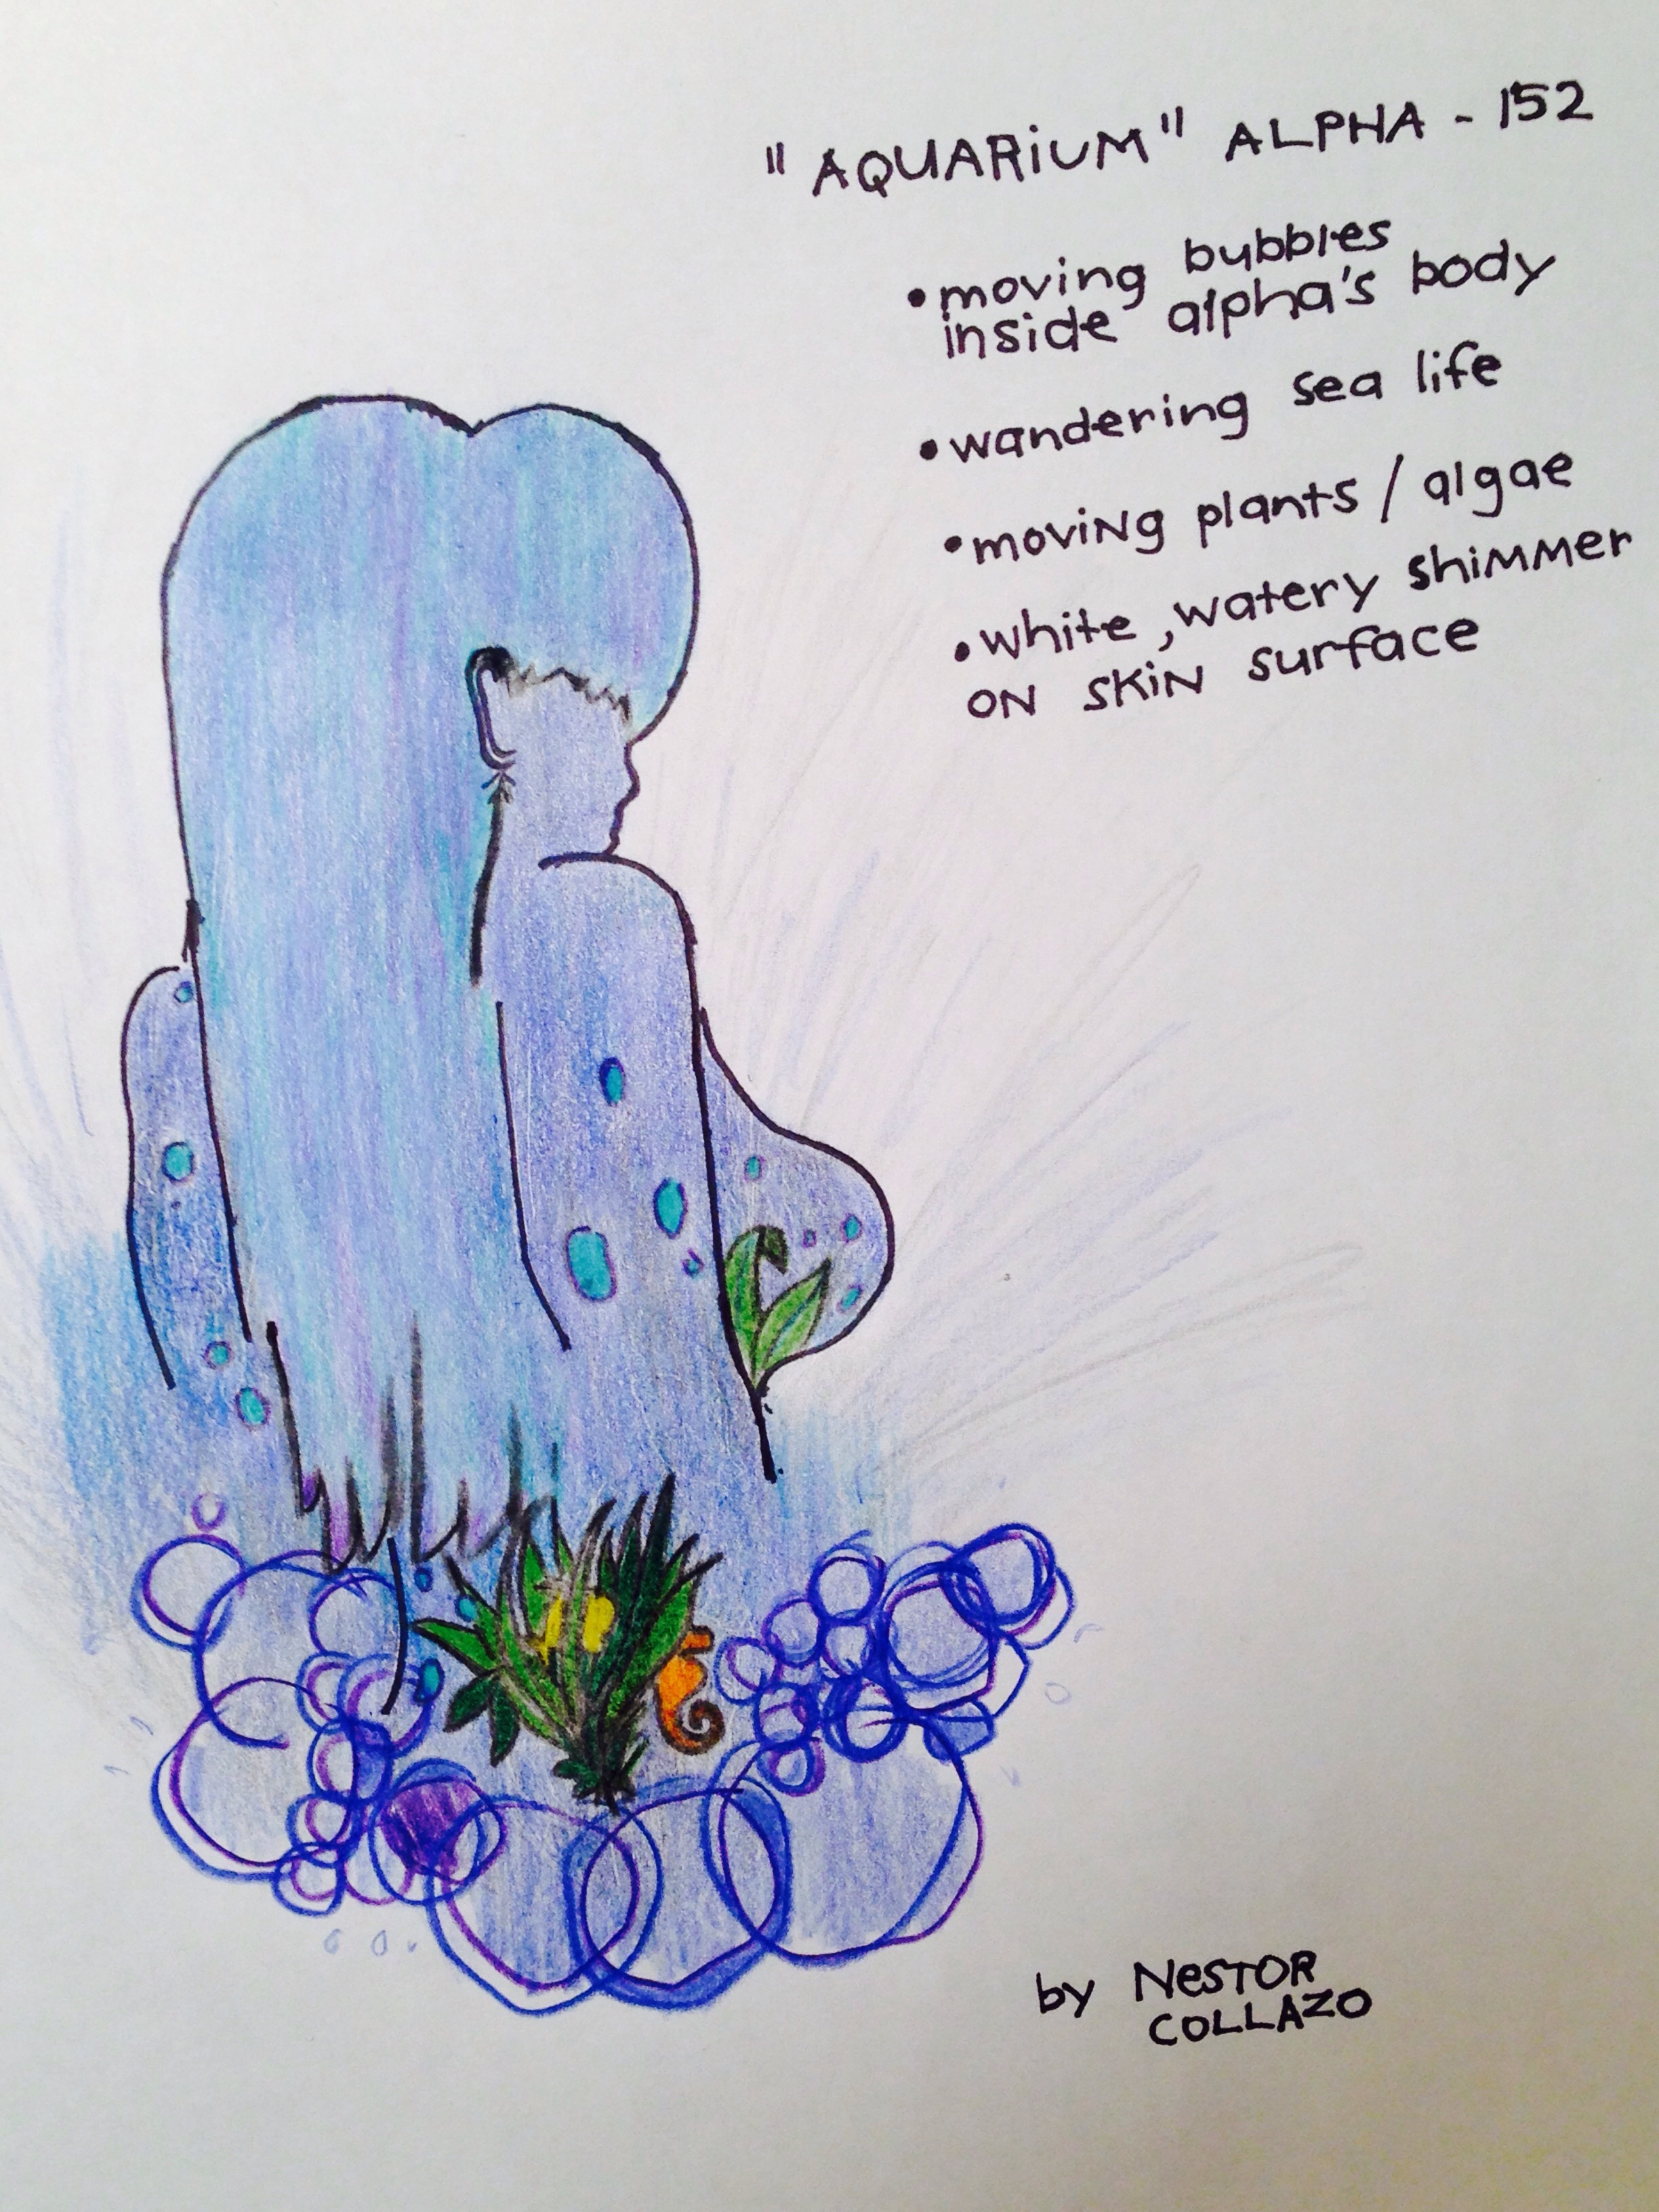 "AQUARiUM" ALPHA - 152
• moving bubbles
inside alpha's body
• wandering sea life
• moviNg plants / algae
• white, watery shiMMer
ON SKiN surface
by NeSTOR
COLLAZO